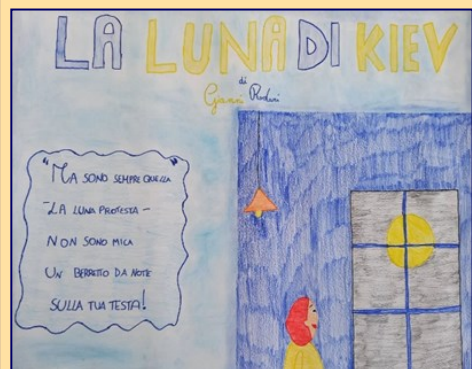 LA LUNA DI KIEV
di
Gianni Rodari
"MA SONO SEMPRE QUELLA"
-LA LUNA PROTESTA-
NON SONO MICA
UN BERRETTO DA NOTE
SULLA TUA TESTA!